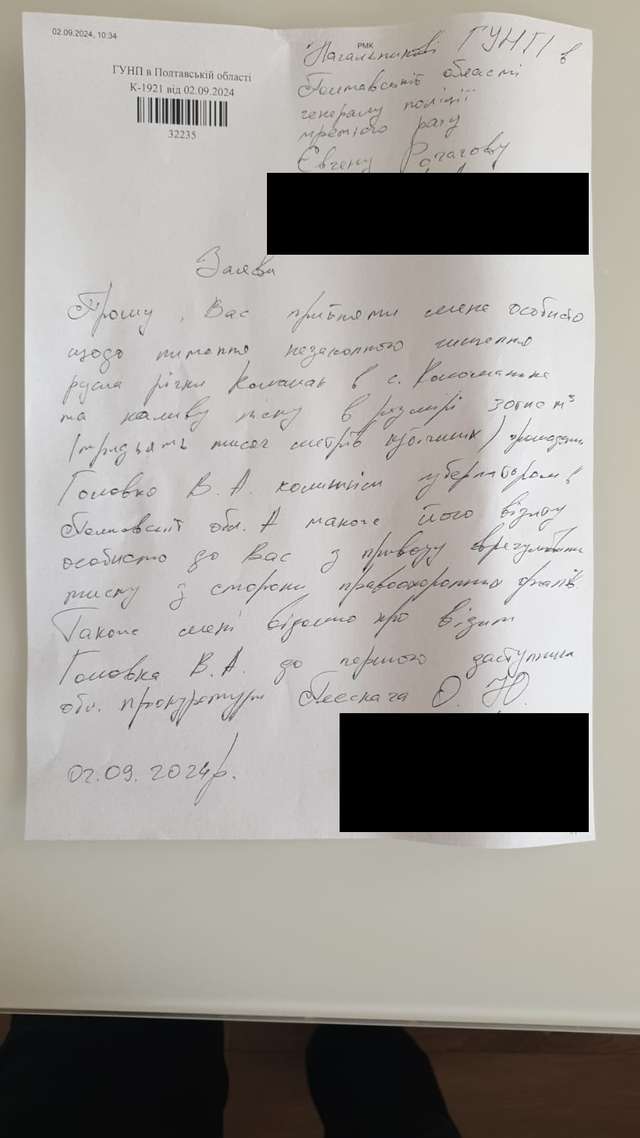 02.09.2024, 10:34
РМК
ГУНП в Полтавській області
К-1921 від 02.09.2024
32235
Начальникові ГУНП в
Полтавській області
генералу поліції
третього рангу
Євгену Рогачову
Заява
Прошу, Вас прийняти мене особисто
щодо питання незаконного чищення
русла річки Коломак в с.
та намиву піску в розмірі 30тис м³
(тридцять тисяч метрів кубічних)
Головко В. А. колишнім губернатором в
Полтавській обл. А також його візиту
особисто до Вас з приводу врегулювання
тиску з сторони правоохоронних органів.
Також мені відомо про візит
Головка В. А. до першого заступника
обл. прокуратури О. Ю.
02.09.2024р.